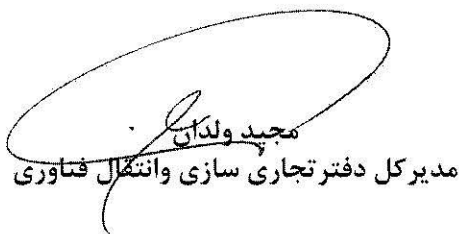 مجید ولدان
مدیر کل دفتر تجاری سازی وانتقال فناوری